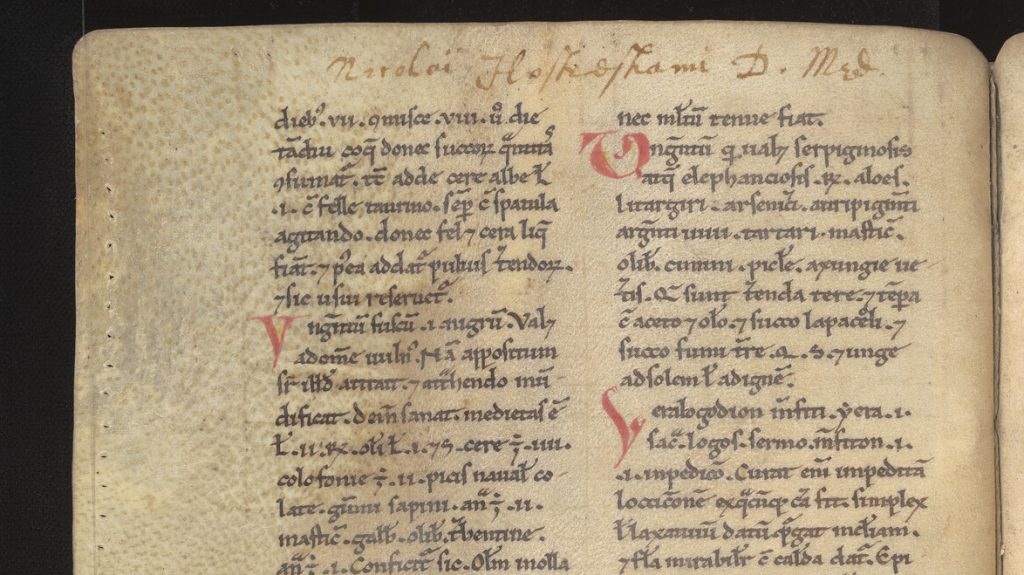 Nicolai D. Med
dieb9. vii. 9misce. viii. u̾o die
coq̄ donec succorꝝ
9sumat᷑. tē adde cere albe ł
.i. c̄ felle taurino. sēp c̄ spatula
agitando. donec fel ⁊ cera liq̄
fiāt. ⁊ p̄ea addat᷑ puluis t̾endoꝝ.
⁊ sic usui reseruet᷑.
Vngentū fuscū .i. nigrū. Valꝫ
ad om̄e uuln9. Nā appositum
sr̄ illđ attrait. ⁊ att̾hendo mū
dificat. dein̄ sanat. medietas ē
ł. ii. ꝶ. olī ł. i. ⁊ s. cere ℥. iiii.
colofonie ℥. ii. picis naual᷑ co
late. gūmi sapini. an̄ ℥. ii.
mastic̄. galb̄. olib̄. t̾bentine.
an̄ ℥. i. Conficit᷑ sic. Olm̄ in olla
nec ml̄tū tenue fiat.
Vngn̄tū qi ualꝫ serpiginosis
atq̄ elephanciosis. ꝶ. aloes.
litargiri. arsenici. auripigm̄ti
argn̄ti uiui. tartari. mastic̄.
olib̄. cimini. axungie ue
t̾is. Q̄ sunt t̾enda tere. ⁊ tēpa
c̄ aceto ⁊ oło. ⁊ succo ⁊
succo fumi tr̄e. Q. S. ⁊ unge
ad solem ł ad ignē.
Yeralogodion m̄fiti. yera .i.
sac̾. logos. sermo. m̄fiton .i.
.i. impedic̄o. Curat eni᷑ impeditā
locucionē ex q̄cūq; cā fit. simplex
ł laxatiuū datū p̄gat
⁊ fla mirabilr̄ c̄ calda dat᷑. Epi